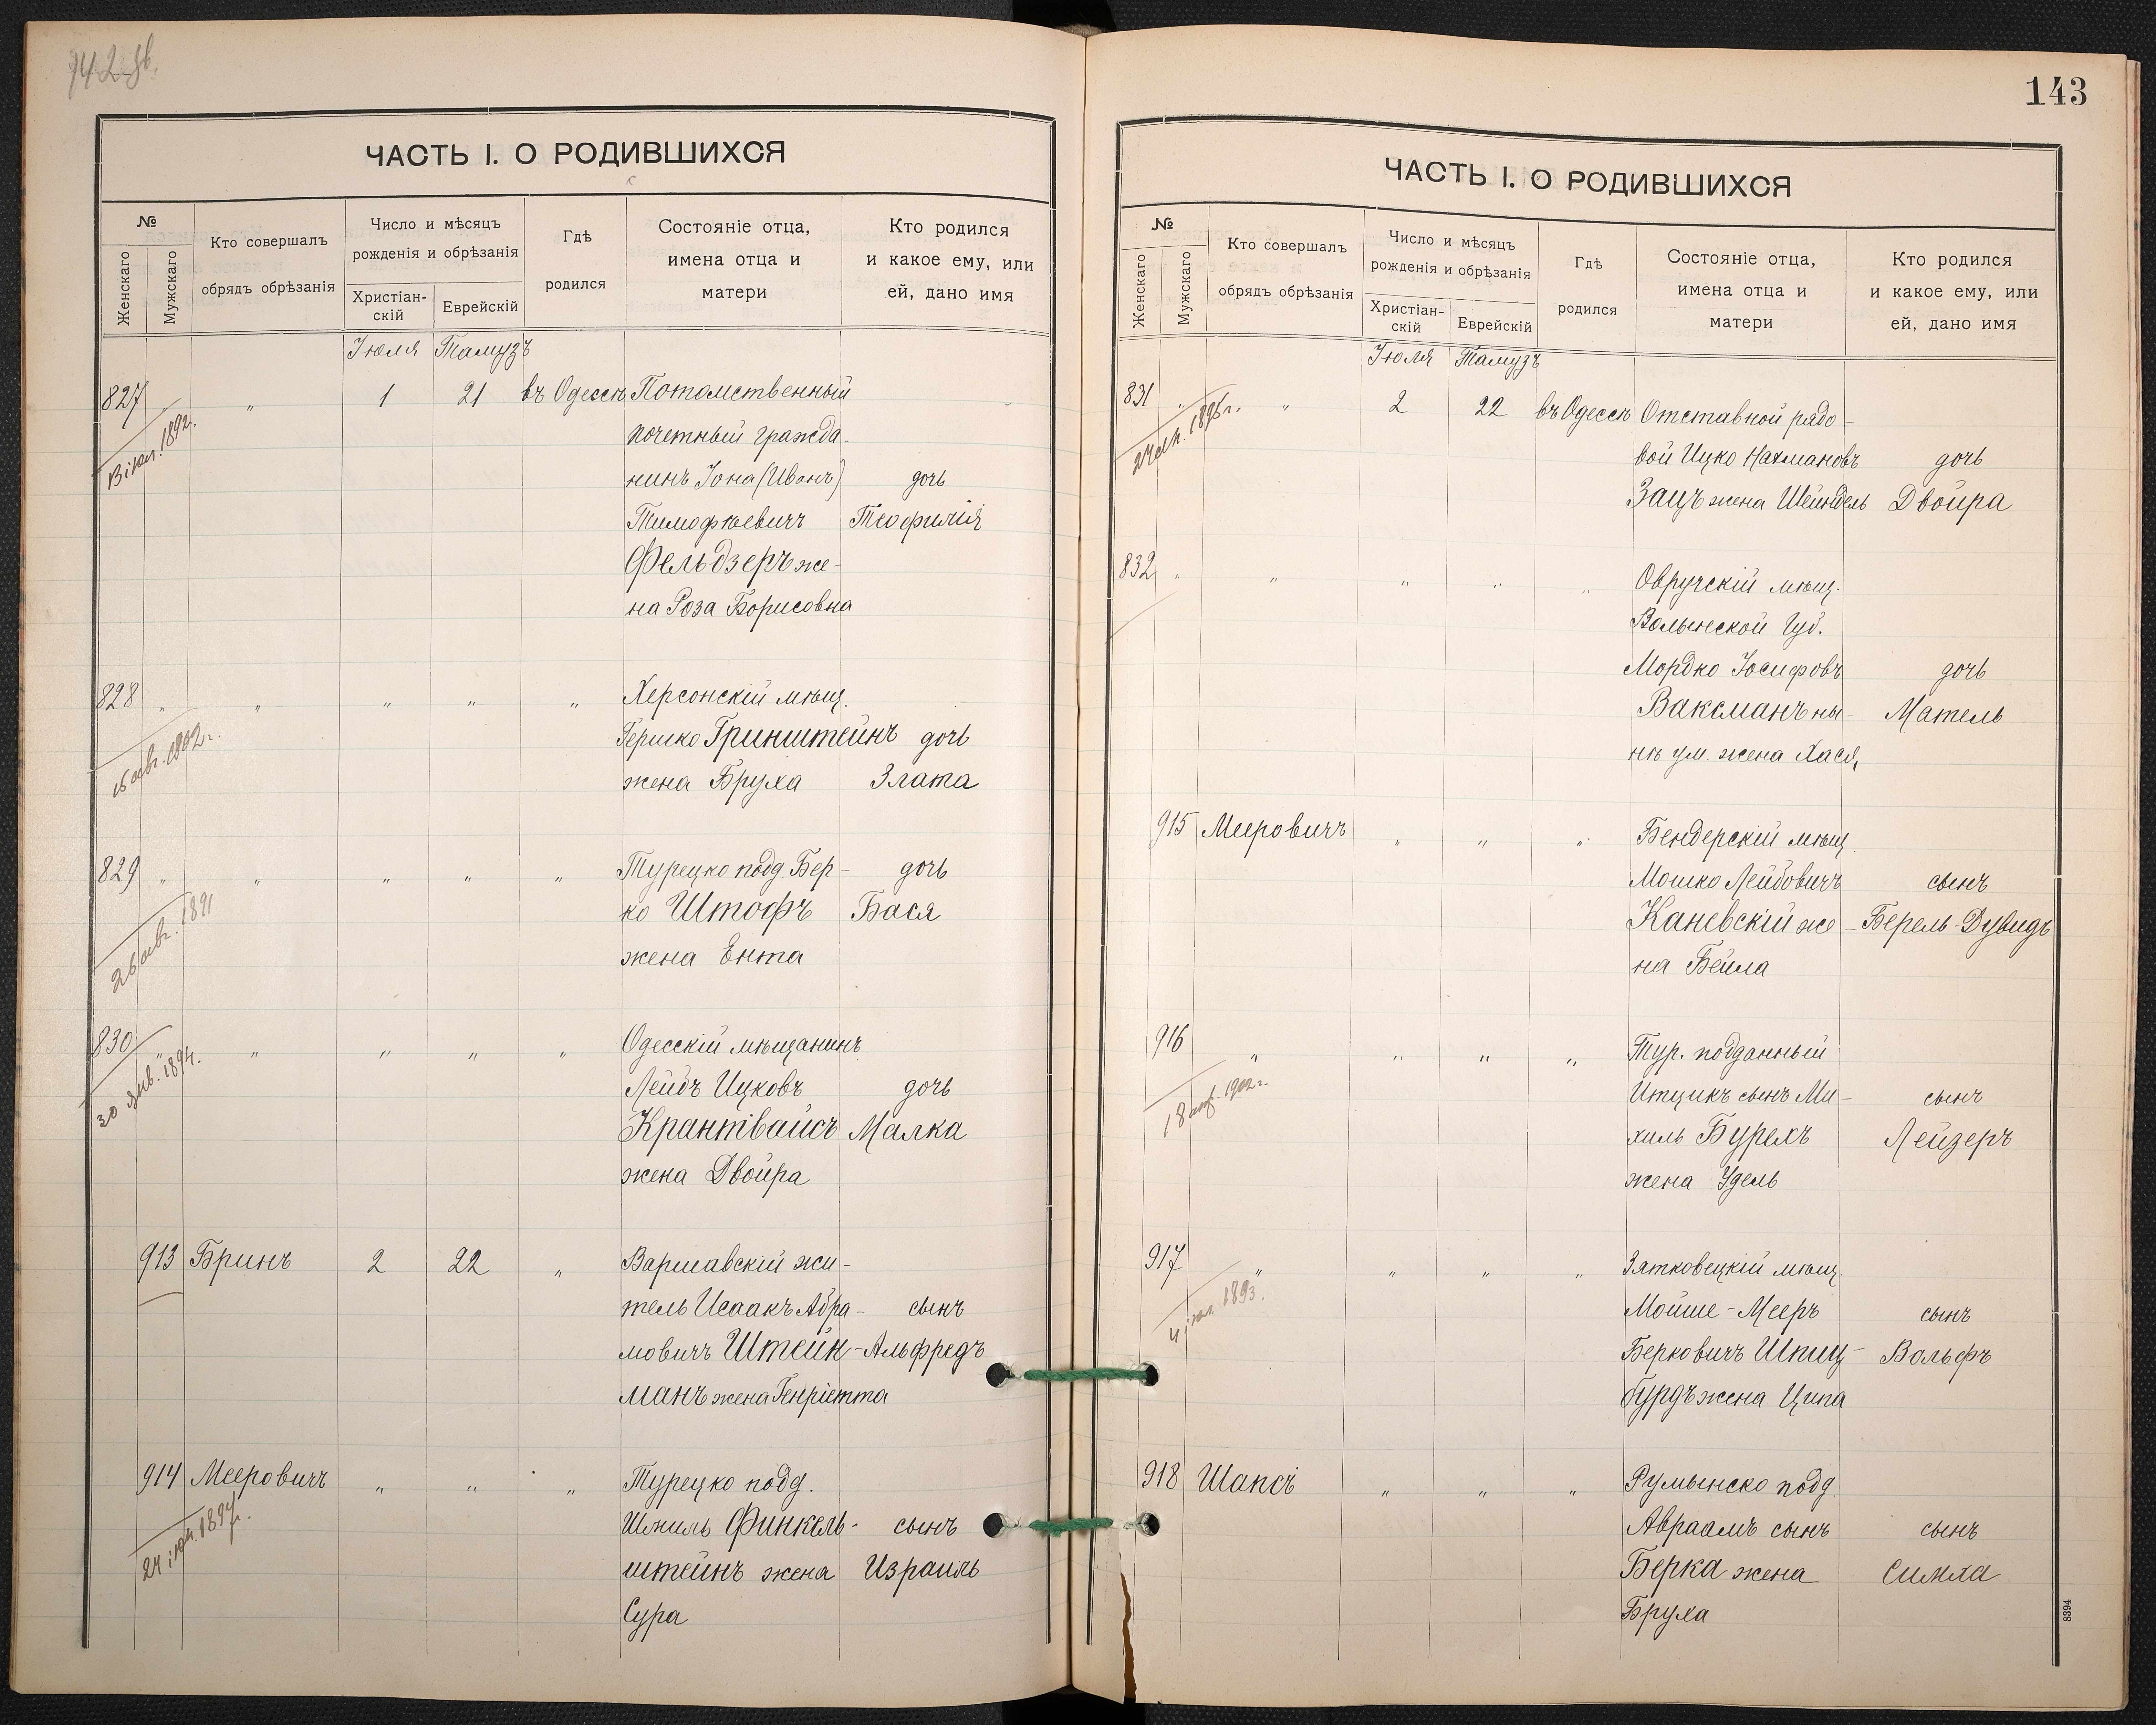 142 об.
ЧАСТЬ I. О РОДИВШИХСЯ
№
Женскаго
Мужскаго
Кто совершалъ
обрядъ обрѣзанія
Число и мѣсяцъ
рожденія и обрѣзанія
Христіан-
скій
Еврейскій
Гдѣ
родился
Состояніе отца,
имена отца и
матери
Кто родился
и какое ему, или
ей, дано имя
Іюля Тамузъ
827 " 1 21 въ Одессѣ Потомственный
почетный гражда-
13 іюл. 1892.
нинъ Іона (Иванъ) дочь
Тимофѣевичъ Теофилія
Фельдзеръ же-
на Роза Борисовна
828 " " " " " Херсонскій мѣщ.
Гершко Гринштейнъ дочь
16 авг. 1902 г.
жена Бруха Злата
829 " " " " " Турецко подд. Бер- дочь
ко Штофъ Бася
26 авг. 1891
жена Ента
830 " " " " " Одесскій мѣщанинъ
30 янв. 1894.
Лейбъ Ицковъ дочь
Крантвайсъ Малка
жена Двойра
913 Бринъ 2 22 " Варшавскій жи-
тель Исаакъ Абра- сынъ
мовичъ Штейн- Альфредъ
манъ жена Генріетта
914 Мееровичъ " " " Турецко подд.
Шмиль Финкель- сынъ
24 іюн. 1897 г.
штейнъ жена Израиль
Сура
143
ЧАСТЬ I. О РОДИВШИХСЯ
№
Женскаго
Мужскаго
Кто совершалъ
обрядъ обрѣзанія
Число и мѣсяцъ
рожденія и обрѣзанія
Христіан-
скій
Еврейскій
Гдѣ
родился
Состояніе отца,
имена отца и
матери
Кто родился
и какое ему, или
ей, дано имя
Іюля Тамузъ
831 " " 2 22 въ Одессѣ Отставной рядо-
вой Ицко Нахмановъ дочь
Зацъ жена Шейндель Двойра
832 " " " " " Овручскій мѣщ.
Волынской Губ.
Мордко Іосифовъ дочь
Ваксманъ ны- Матель
нѣ ум. жена Хася,
915 Мееровичъ " " " Бендерскій мѣщ.
Мошко Лейбовичъ сынъ
Каневскій же- Берель-Дувидъ
на Бейла
916 " " " " Тур. подданный
Итцикъ сынъ Ми- сынъ
хиль Бурехъ Лейзеръ
жена Удель
917 " " " " Зятковецкій мѣщ.
Мойше-Мееръ сынъ
Берковичъ Шпиц- Вольфъ
бурдъ жена Ципа
918 Шапсъ " " " Румынско подд.
Авраамъ сынъ сынъ
Берка жена Симха
Бруха
8394